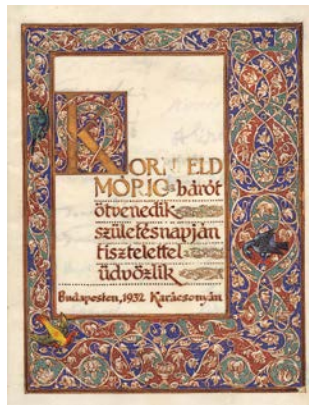 KORNFELD
MÓRIC bárót
ötvenedik
születésnapján
tisztelettel
üdvözlik
Budapesten, 1932 Karácsonyán